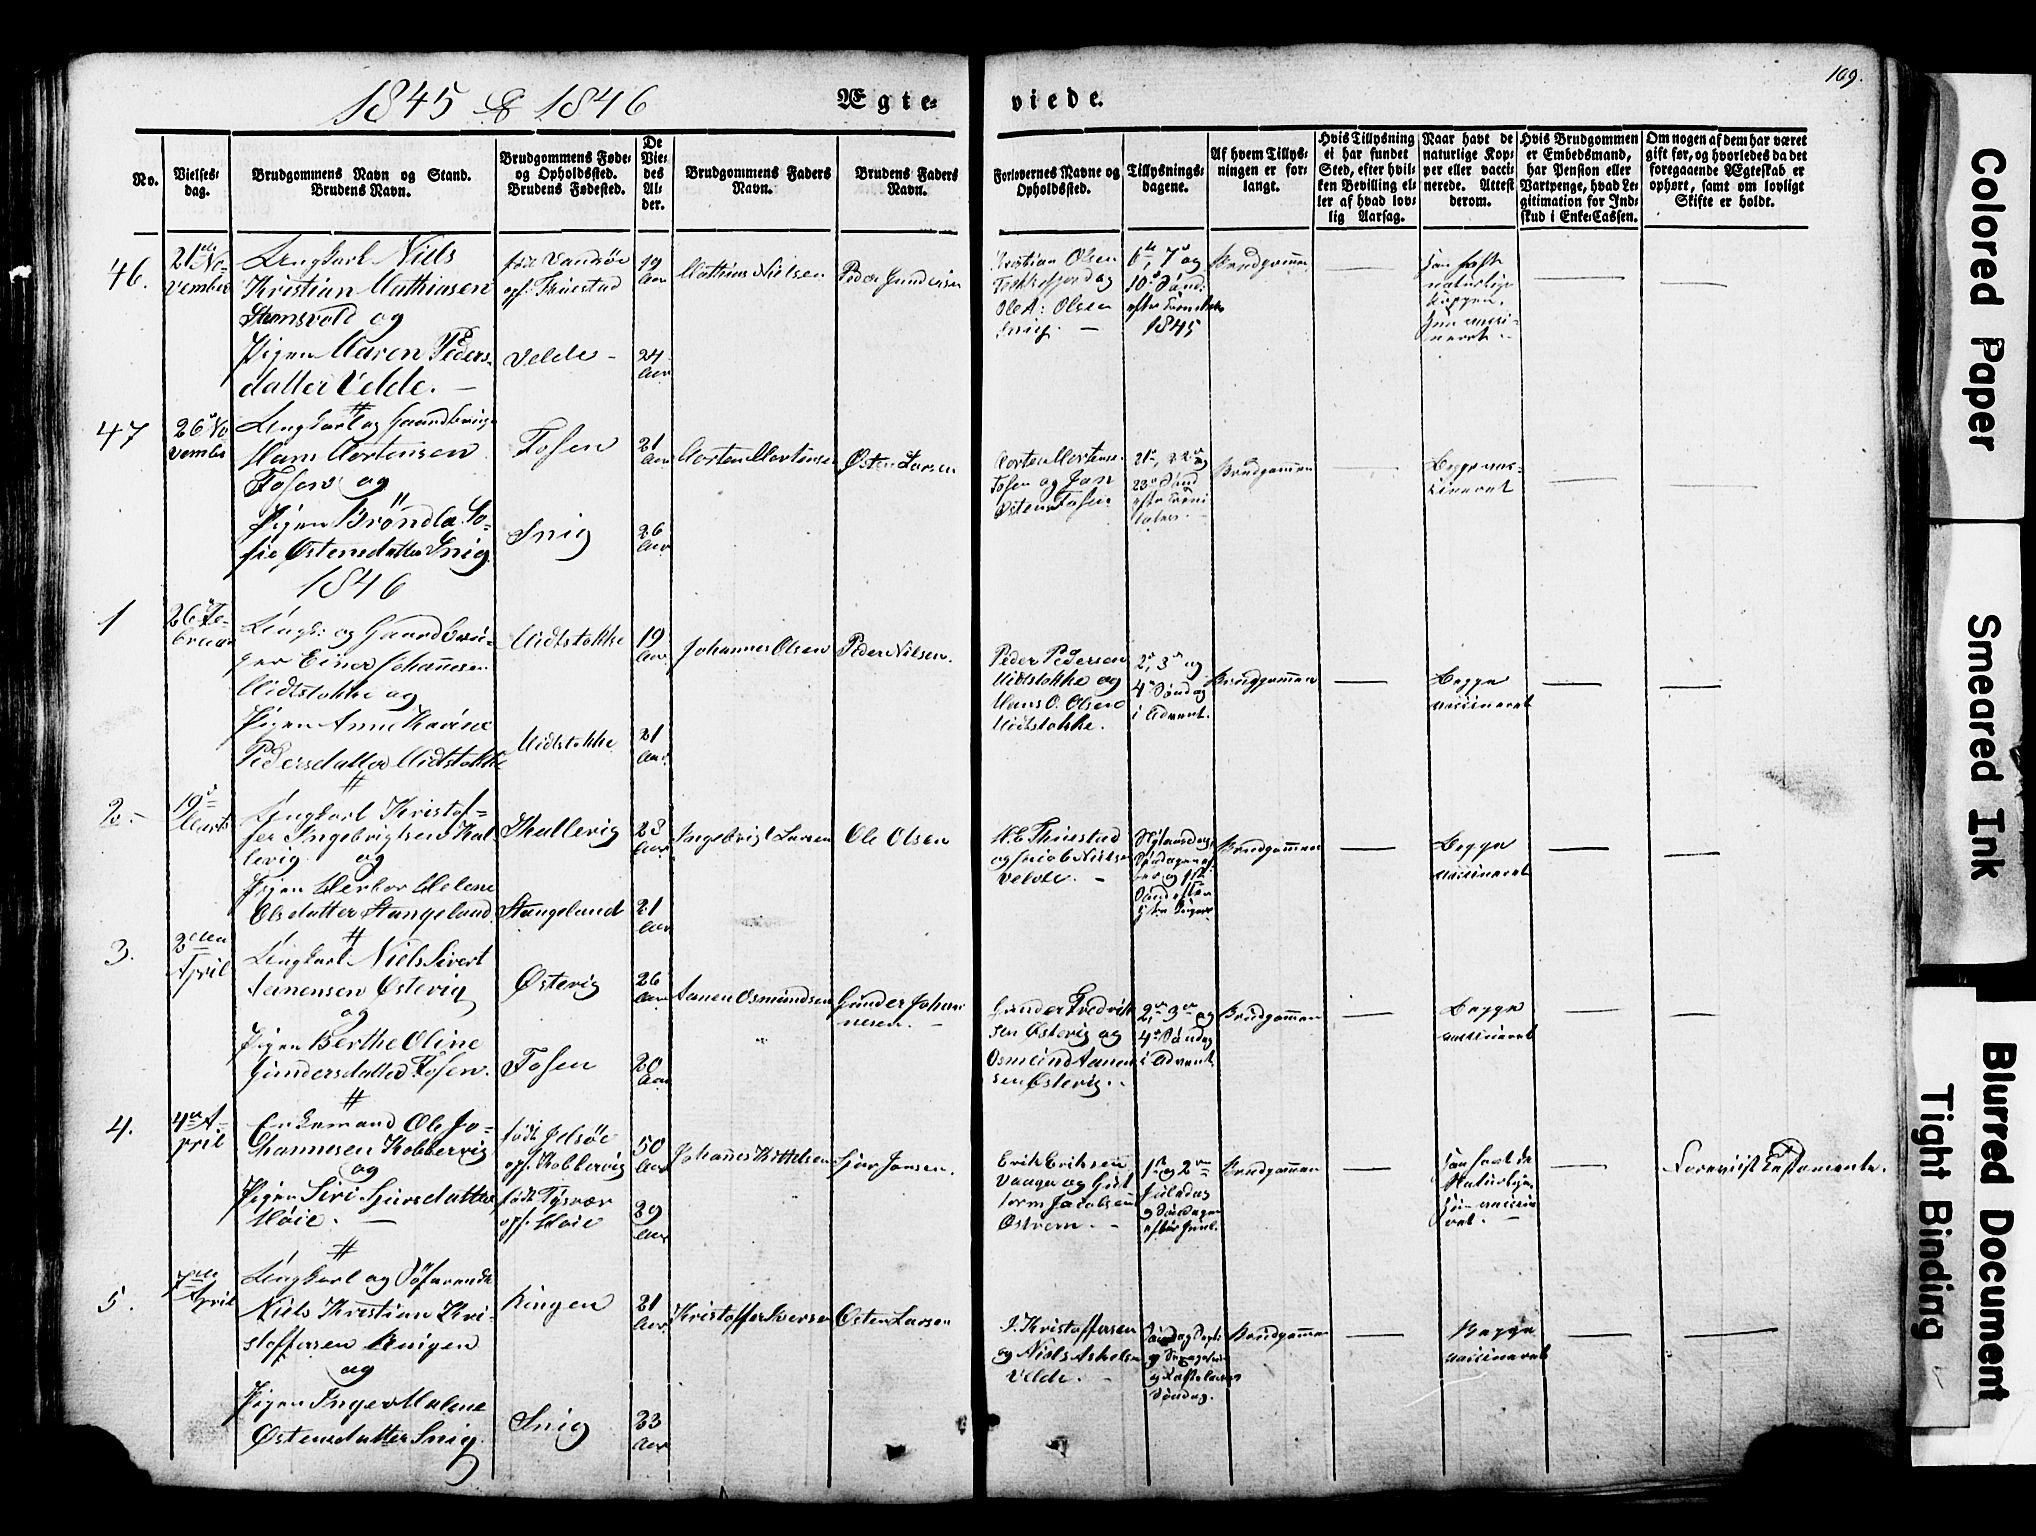 1845 & 1846
Ægte-
viede.
169.
No.
Vielses-
dag.
Brudgommens Navn og Stand.
Brudens Navn.
Brudgommens Føde-
og Opholdssted.
Brudens Fødested.
De
Vie-
des
Al-
der.
Brudgommens Faders
Navn.
Brudens Faders
Navn.
Forlovernes Navne og
Opholdssted.
Tillysnings-
dagene.
Af hvem Tillys-
ningen er for-
langt.
Hvis Tillysning
ei har fundet
Sted, efter hvil-
ken Bevilling el-
ler af hvad lov-
lig Aarsag.
Naar havt de
naturlige Kop-
per eller vacci-
nerede. Attest
derom.
Hvis Brudgommen
er Embedsmand,
har Pension eller
Vartpenge, hvad Le-
gitimation for Ind-
skud i Enke-Cassen.
Om nogen af dem har været
gift før, og hvorledes da det
foregaaende Ægteskab er
ophørt, samt om lovligt
Skifte er holdt.
46.
21de No-
vember
Ungkarl Niels
Kristian Mathiasen
og
Pigen Maren Peders-
datter Velde. —
Velde -
19
Aar
24
Aar
Mathias Nielsen
Peder Gundersen
Kristian Olsen
Ole A: Olsen
Snig. —
6te, 7de og
10de Sönd.
1845
Brudgommen
Han havt
naturlige
Kopper.
Hun vacci-
neret.
47
26de No
vember
Ungkarl og Gaardbruger
Mortensen
Fosen og
Pigen Bröndla So-
fie Østensdatter Snig
Fosen
Snig
21
Aar
26
Aar
Morten Mortensen
Østen Larsen
Morten Mortensen
Fosen og Jan
Østensen Fosen
21de, 22de og
23de Sönd
efter Trini
tatis. -
Brudgommen
Begge vac-
cineret
1846
1
26de Fe-
bruar
Ungk: og Gaardbru-
ger Einer Johannesen
Midtstokke og
Pigen Anne Karine
Pedersdatter Midtstokke
Midtstokke
Midtstokke
19
Aar
21
Aar.
Johannes Olsen
Peder Nilsen.
Peder Pedersen
Midtstokke og
Hans O. Olsen
Midtstokke.
2de, 3de og
4de Söndag
i Advent.
Brudgommen
Begge
vaccineret
2.-
19de
Marts
Ungkarl Kristof-
fer Ingebrigtsen Kal-
levig og
Pigen Herbor Helene
Olsdatter Stangeland
Skallevig
Stangeland
23
Aar.
21
Aar
Ingebrigt Larsen
Ole Olsen
H. E. Thuestad
og Jacob Nielsen
Velde. -
Nytaarsdag,
Söndagen ef-
ter og 1ste
Brudgommen
Begge
vaccineret
3.
2den
April
Ungkarl Niels Sivert
Aanensen Østevig
og
Pigen Berthe Oline
Gundersdatter Fosen.
Østevig
Fosen
26
Aar
20
Aar
Aanen Osmundsen
Gunder Johan-
nesen. -
Gunder Fredrik
sen Østevig og
Osmund Aanen
sen Østevig. -
2den, 3die og
4de Söndag
i Advent
Brudgommen
Begge
vaccineret
4.
4de A-
pril
Enkemand Ole Jo-
hannesen Kobbervig
og
Pigen Siri Sjursdatter
Høie. —
født Jelsøe
opf. Kobbervig
født Tysvær
opf. Høie
50
Aar
29
Aar
Johanes Kittelsen
Sjur Jansen.
Erik Eriksen
Vaage og Gut
torm Jacobsen
Østrem. -
1ste og 2den
Juledag
og Söndagen
efter Juul.
Brudgommen
Han havt de
Naturlige,
Hun vaccine
ret. -
Forevist Testamente.
5.
7de
April
Ungkarl og Söfarende
Niels Kristian Kri-
stoffersen Ringen
og
Pigen Inger Malene
Østensdatter Snig.
Ringen
Snig
21
Aar
23
Aar
Kristoffer Iversen
Østen Larsen
I. Kristoffersen
og Niels Askelsen
Velde. -
Söndag.
Brudgommen
Begge
vaccineret
Colored Paper
Smeared Ink
Blurred Document
Tight Binding